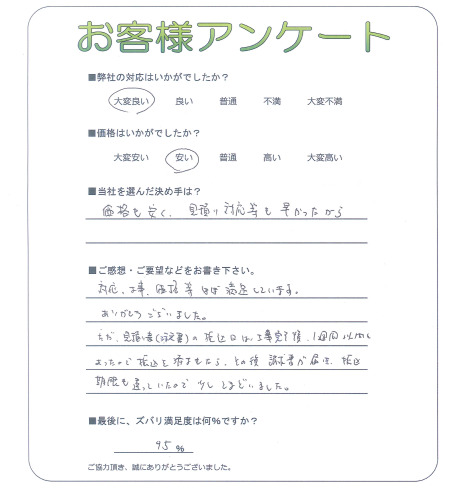 お客様アンケート
■弊社の対応はいかがでしたか？
大変良い 良い 普通 不満 大変不満
■価格はいかがでしたか？
大変安い 安い 普通 高い 大変高い
■当社を選んだ決め手は？
価格も安く、見積り対応等も早かったから
■ご感想・ご要望などをお書き下さい。
対応、工事、価格等ほぼ満足しています。
ありがとうございました。
ただ、見積書(決定書)の振込日は、工事完了後、1週間以内と
あったので振込を済ませたら、その後、請求書が届き、振込
期限も違っていたので少しとまどいました。
■最後に、ズバリ満足度は何％ですか？
95％
ご協力頂き、誠にありがとうございました。